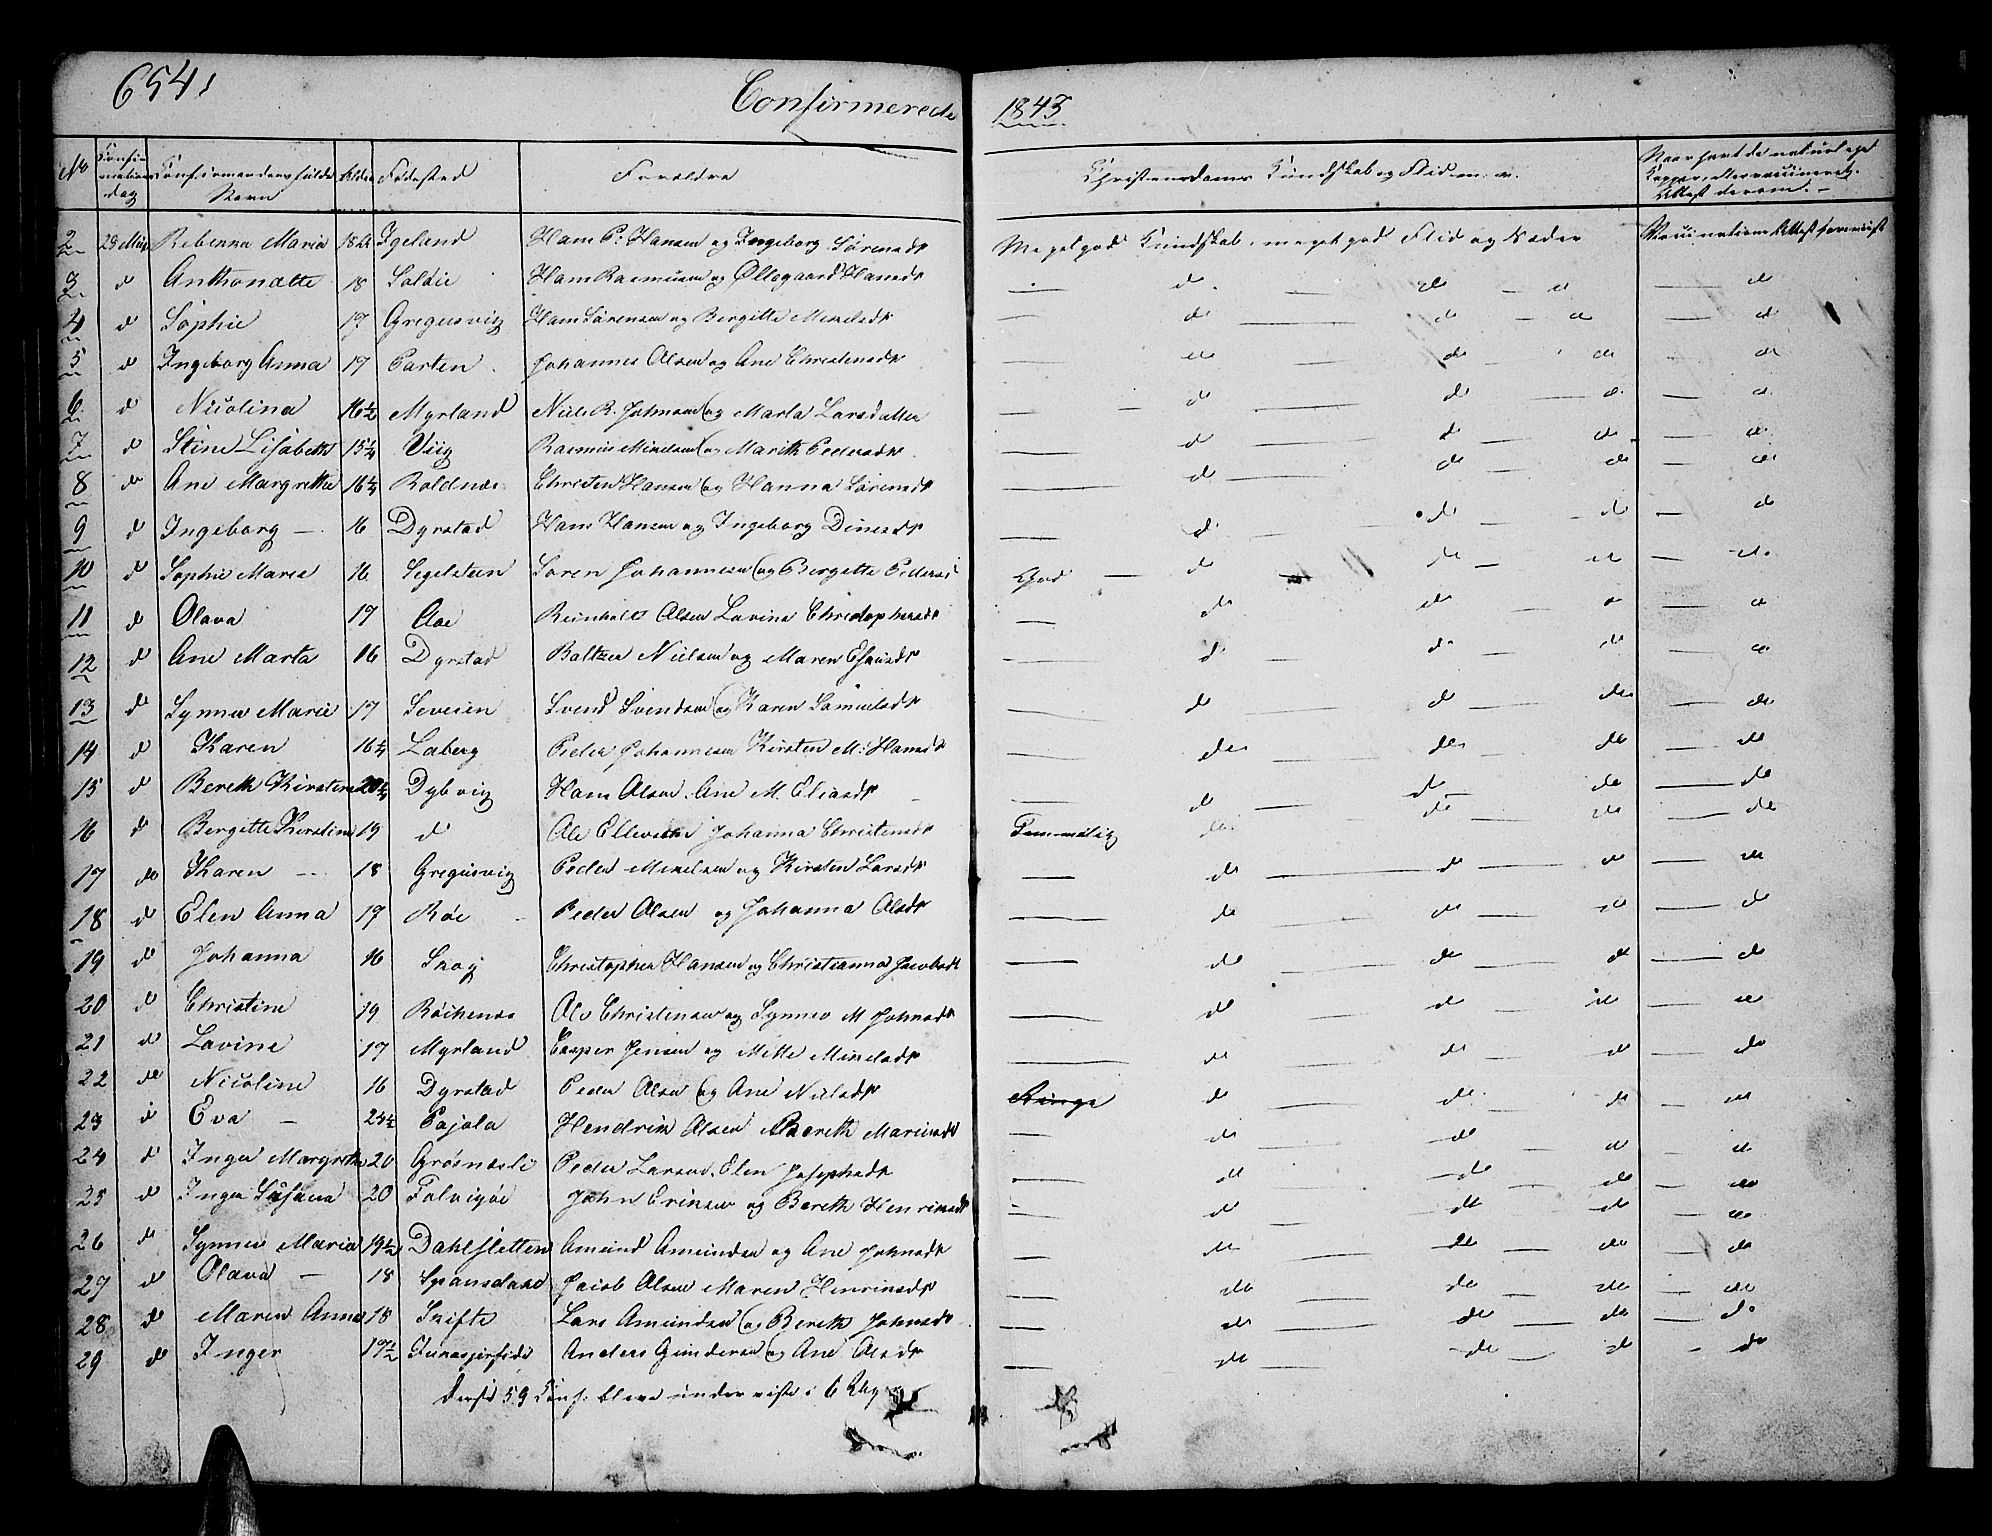 654
Confirmerede 1843
No Confirmations dag Confirmandens fulde Navn Alder Fødested Forældre Christendoms Kundskab og Flid m. v. Naar havt de naturlige Kopper, eller vaccineret. Attest derom.
2 28 Rebenna Maria 18 Igeland Hans P: Hansen og Ingeborg Sørensdt Meget god Kundskab, meget god Flid og Sæder Vaccinations Attest foreviist
3 d Anthonette 18 Soløie Hans Rasmusen og Øllegaard Hansdt — d. de — d — de
4 d Sophie 17 Gregusvig Hans Sørensen og Bergitte Mikelsdt — de — de — de — de
5 d Ingeborg Anna 17 Carten Johannes Olsen og Ane Christensdt — de — de — de — de
6 d Nicolina 16½ Myrland Niels R. Johnsen og Marta Larsdatter — de — de — de — de
7 d Stine Lisabeth 15¼ Viig Rasmus Mikelsen og Marith Pedersdt — de — de — de — de
8 d Ane Margrethe 16¼ Roldnæs Christen Hansen og Hanna Sørensdt — de — de — de — de
9 d Ingeborg — 16 Dyrstad Hans Hansen og Ingeborg Dinesdt — d — de — de — de
10 d Sophie Maria 16 Segelsteen Søren Johannesen og Bergitte Pedersd God — de — de — de — de
11 d Olava 17 Aae Reinholt Olsen Lavina Christophersdt — de de — d — d
12 d Ane Marta 16 Dyrstad Baltzer Nielsen og Maren — d — de — de — de
13 d Synnev Marie 17 Seveien Svend Svendsen og Karen Samuelsdt — de — de — de — de
14 d Karen 16¼ Laberg Peder Johannesen Kirsten M: Hansdt — de — de — de — de
15 d Bereth Kirstine 20¼ Dybvig Hans Olsen. Ane M. Eliasdt — de — de — de — de
16 d Bergitte Kirstine 19 d Ole Johanna Christensdt Temmelig de de de — de
17 de Karen — 18 Gregusvig Peder Mikelsen og Kirsten Larsdt — de — de — de — de
18 d Elen Anna 17 Røe Peder Olsen og Johanna Olsdt — de — de — de — de
19 d Johanna 16 Skog Christopher Hansen og Christianna Jacobsdt — de — de — de — de
20 d Christine 19 Røikenæs Ole Christensen og Synnev M Johnsdt — de — de — de — de
21 de Lavine 17 Myrland Casper Jensen og Mette Mikelsdt — de — de — de — de
22 de Nicoline 16 Dyrstad Peder Olsen og Ane Nielsdt Ringe de — de — de — de
23 d Eva — 23½ Pajola Hendrik Olsen Bereth Marinsdt — de — de — de — de
24 d Inger Margrethe 20 Grøsnæsli Peder Larsen. Elen Josephsdt — de — de — de — de
25 d Inger Susana 20 John Eriksen og Bereth Henriksdt — de — de — de — de
26 d Synnev Maria 19½ Dahlsletten Amund Amundsen og Ane Johnsdt — de — de — de — de
27 d Olava — 18 Spansdalen Jacob Olsen Maren Henriksdt — de — de — de — de
28 de Maren Anna 18 Skifte Lars Amundsen og Bereth Johnsdt — de — de — de — de
29 de Inger 17½ Anders Gundersen og Ane Olsdt — de — de — de — de
59 Conf: bleve underviste i 6